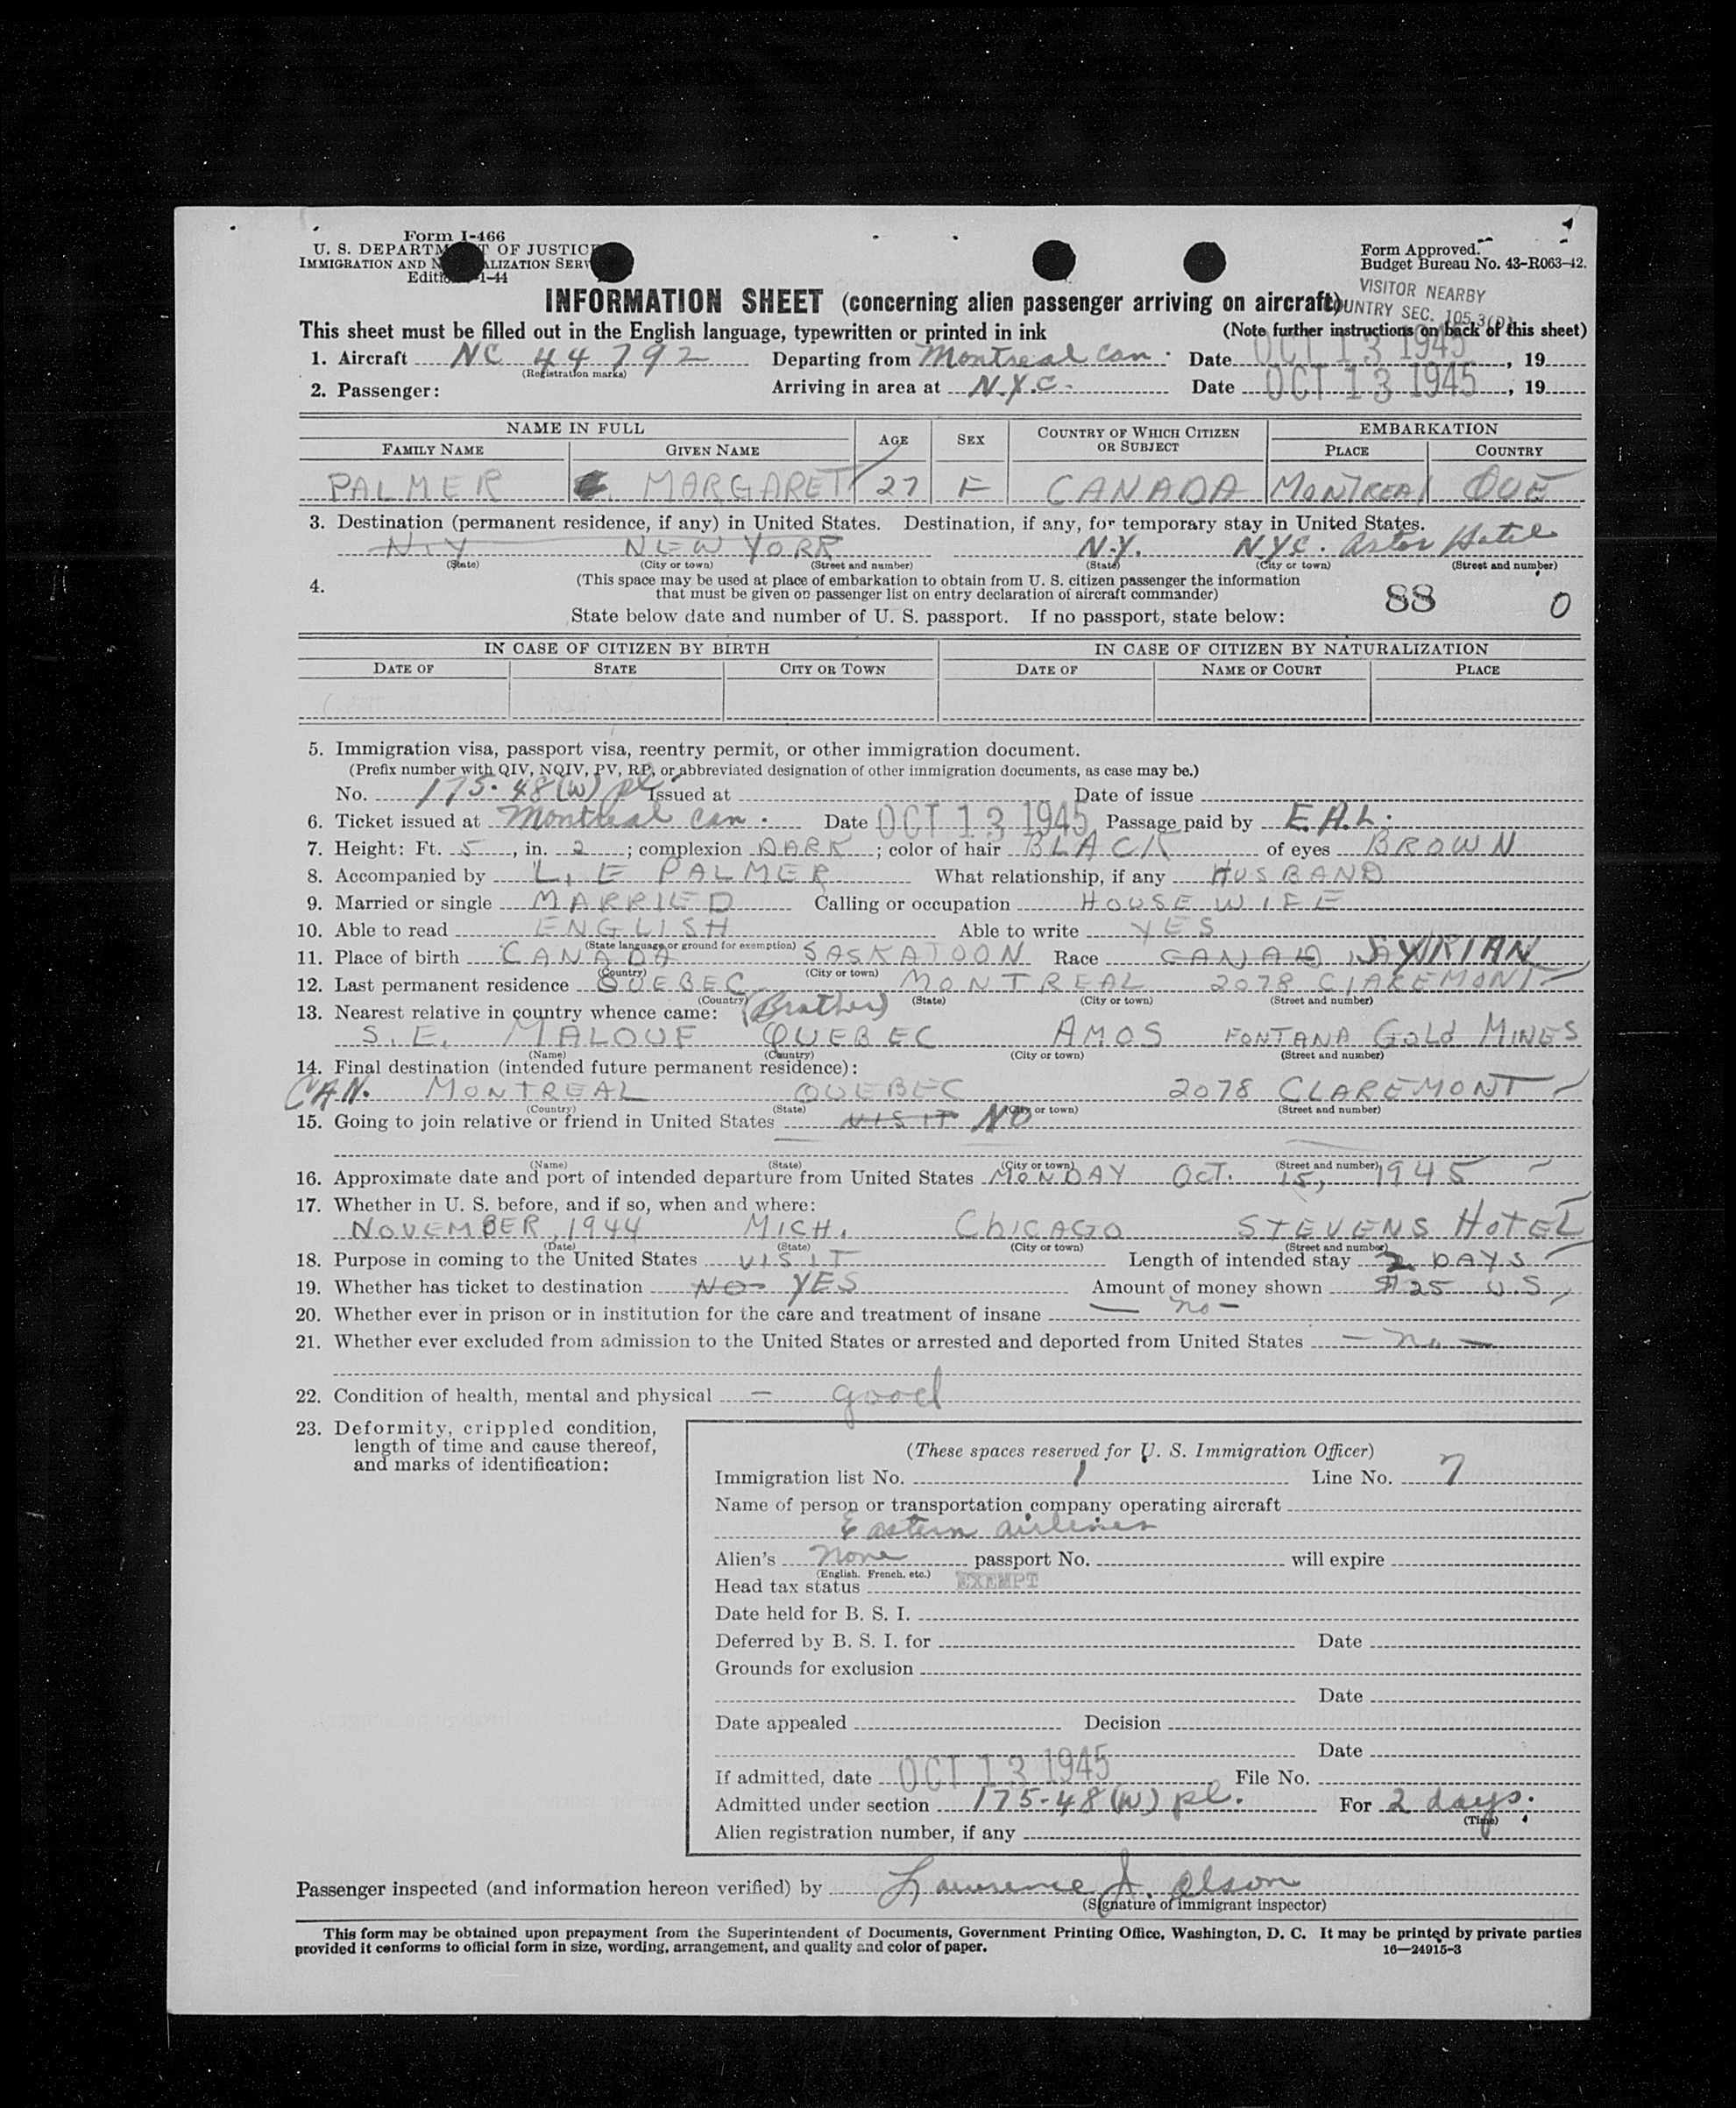 Form I-466
U. S. DEPARTMENT OF JUSTICE
IMMIGRATION AND NATURALIZATION SERV
Edition 1-44
Form Approved.
Budget Bureau No. 43-R063-42.
VISITOR NEARBY
COUNTRY SEC. 105.3(D)
INFORMATION SHEET (concerning alien passenger arriving on aircraft)
This sheet must be filled out in the English language, typewritten or printed in ink (Note further instructions on back of this sheet)
1. Aircraft NC 44792 Departing from Montreal Can. Date OCT 13 1945, 19
(Registration marks)
2. Passenger: Arriving in area at N.Y.C. Date OCT 13 1945, 19
NAME IN FULL AGE SEX COUNTRY OF WHICH CITIZEN OR SUBJECT EMBARKATION
FAMILY NAME GIVEN NAME PLACE COUNTRY
PALMER MARGARET 27 F CANADA MONTREAL QUE
3. Destination (permanent residence, if any) in United States. Destination, if any, for temporary stay in United States.
N.Y NEW YORK N.Y. N.Y.C. Astor Hotel
(State) (City or town) (Street and number) (State) (City or town) (Street and number)
4. (This space may be used at place of embarkation to obtain from U. S. citizen passenger the information
that must be given on passenger list on entry declaration of aircraft commander)
88 0
State below date and number of U. S. passport. If no passport, state below:
IN CASE OF CITIZEN BY BIRTH IN CASE OF CITIZEN BY NATURALIZATION
DATE OF STATE CITY OR TOWN DATE OF NAME OF COURT PLACE
5. Immigration visa, passport visa, reentry permit, or other immigration document.
(Prefix number with QIV, NQIV, PV, RP, or abbreviated designation of other immigration documents, as case may be.)
No. 175-48(W) pl Issued at Date of issue
6. Ticket issued at Montreal Can. Date OCT 13 1945 Passage paid by E.A.L.
7. Height: Ft. 5, in. 2; complexion DARK; color of hair BLACK of eyes BROWN
8. Accompanied by L. E PALMER What relationship, if any HUSBAND
9. Married or single MARRIED Calling or occupation HOUSE WIFE
10. Able to read ENGLISH Able to write YES
(State language or ground for exemption)
11. Place of birth CANADA SASKATOON Race CANAD SYRIAN
(Country) (City or town)
12. Last permanent residence QUEBEC MONTREAL 2078 CLAREMONT
(Country) (State) (City or town) (Street and number)
13. Nearest relative in country whence came: (Brother)
S. E. MALOUF QUEBEC AMOS FONTANA GOLD MINES
(Name) (Country) (City or town) (Street and number)
14. Final destination (intended future permanent residence):
CAN. MONTREAL QUEBEC 2078 CLAREMONT
(Country) (State) (City or town) (Street and number)
15. Going to join relative or friend in United States VISIT NO
(Name) (State) (City or town) (Street and number)
16. Approximate date and port of intended departure from United States MONDAY OCT. 15, 1945
17. Whether in U. S. before, and if so, when and where:
NOVEMBER, 1944 MICH. CHICAGO STEVENS HOTEL
(Date) (State) (City or town) (Street and number)
18. Purpose in coming to the United States VISIT Length of intended stay 2 DAYS
19. Whether has ticket to destination NO YES Amount of money shown $25 U.S
20. Whether ever in prison or in institution for the care and treatment of insane — no —
21. Whether ever excluded from admission to the United States or arrested and deported from United States — no —
22. Condition of health, mental and physical — good
23. Deformity, crippled condition,
length of time and cause thereof,
and marks of identification:
(These spaces reserved for U. S. Immigration Officer)
Immigration list No. 1 Line No. 7
Name of person or transportation company operating aircraft
Eastern airlines
Alien's None passport No. will expire
(English, French, etc.)
Head tax status EXEMPT
Date held for B. S. I.
Deferred by B. S. I. for Date
Grounds for exclusion
Date
Date appealed Decision
Date
If admitted, date OCT 13 1945 File No.
Admitted under section 175-48(W) pl. For 2 days.
(Time)
Alien registration number, if any
Passenger inspected (and information hereon verified) by Lawrence J. Olson
(Signature of immigrant inspector)
This form may be obtained upon prepayment from the Superintendent of Documents, Government Printing Office, Washington, D. C. It may be printed by private parties
provided it conforms to official form in size, wording, arrangement, and quality and color of paper. 16—24915-3